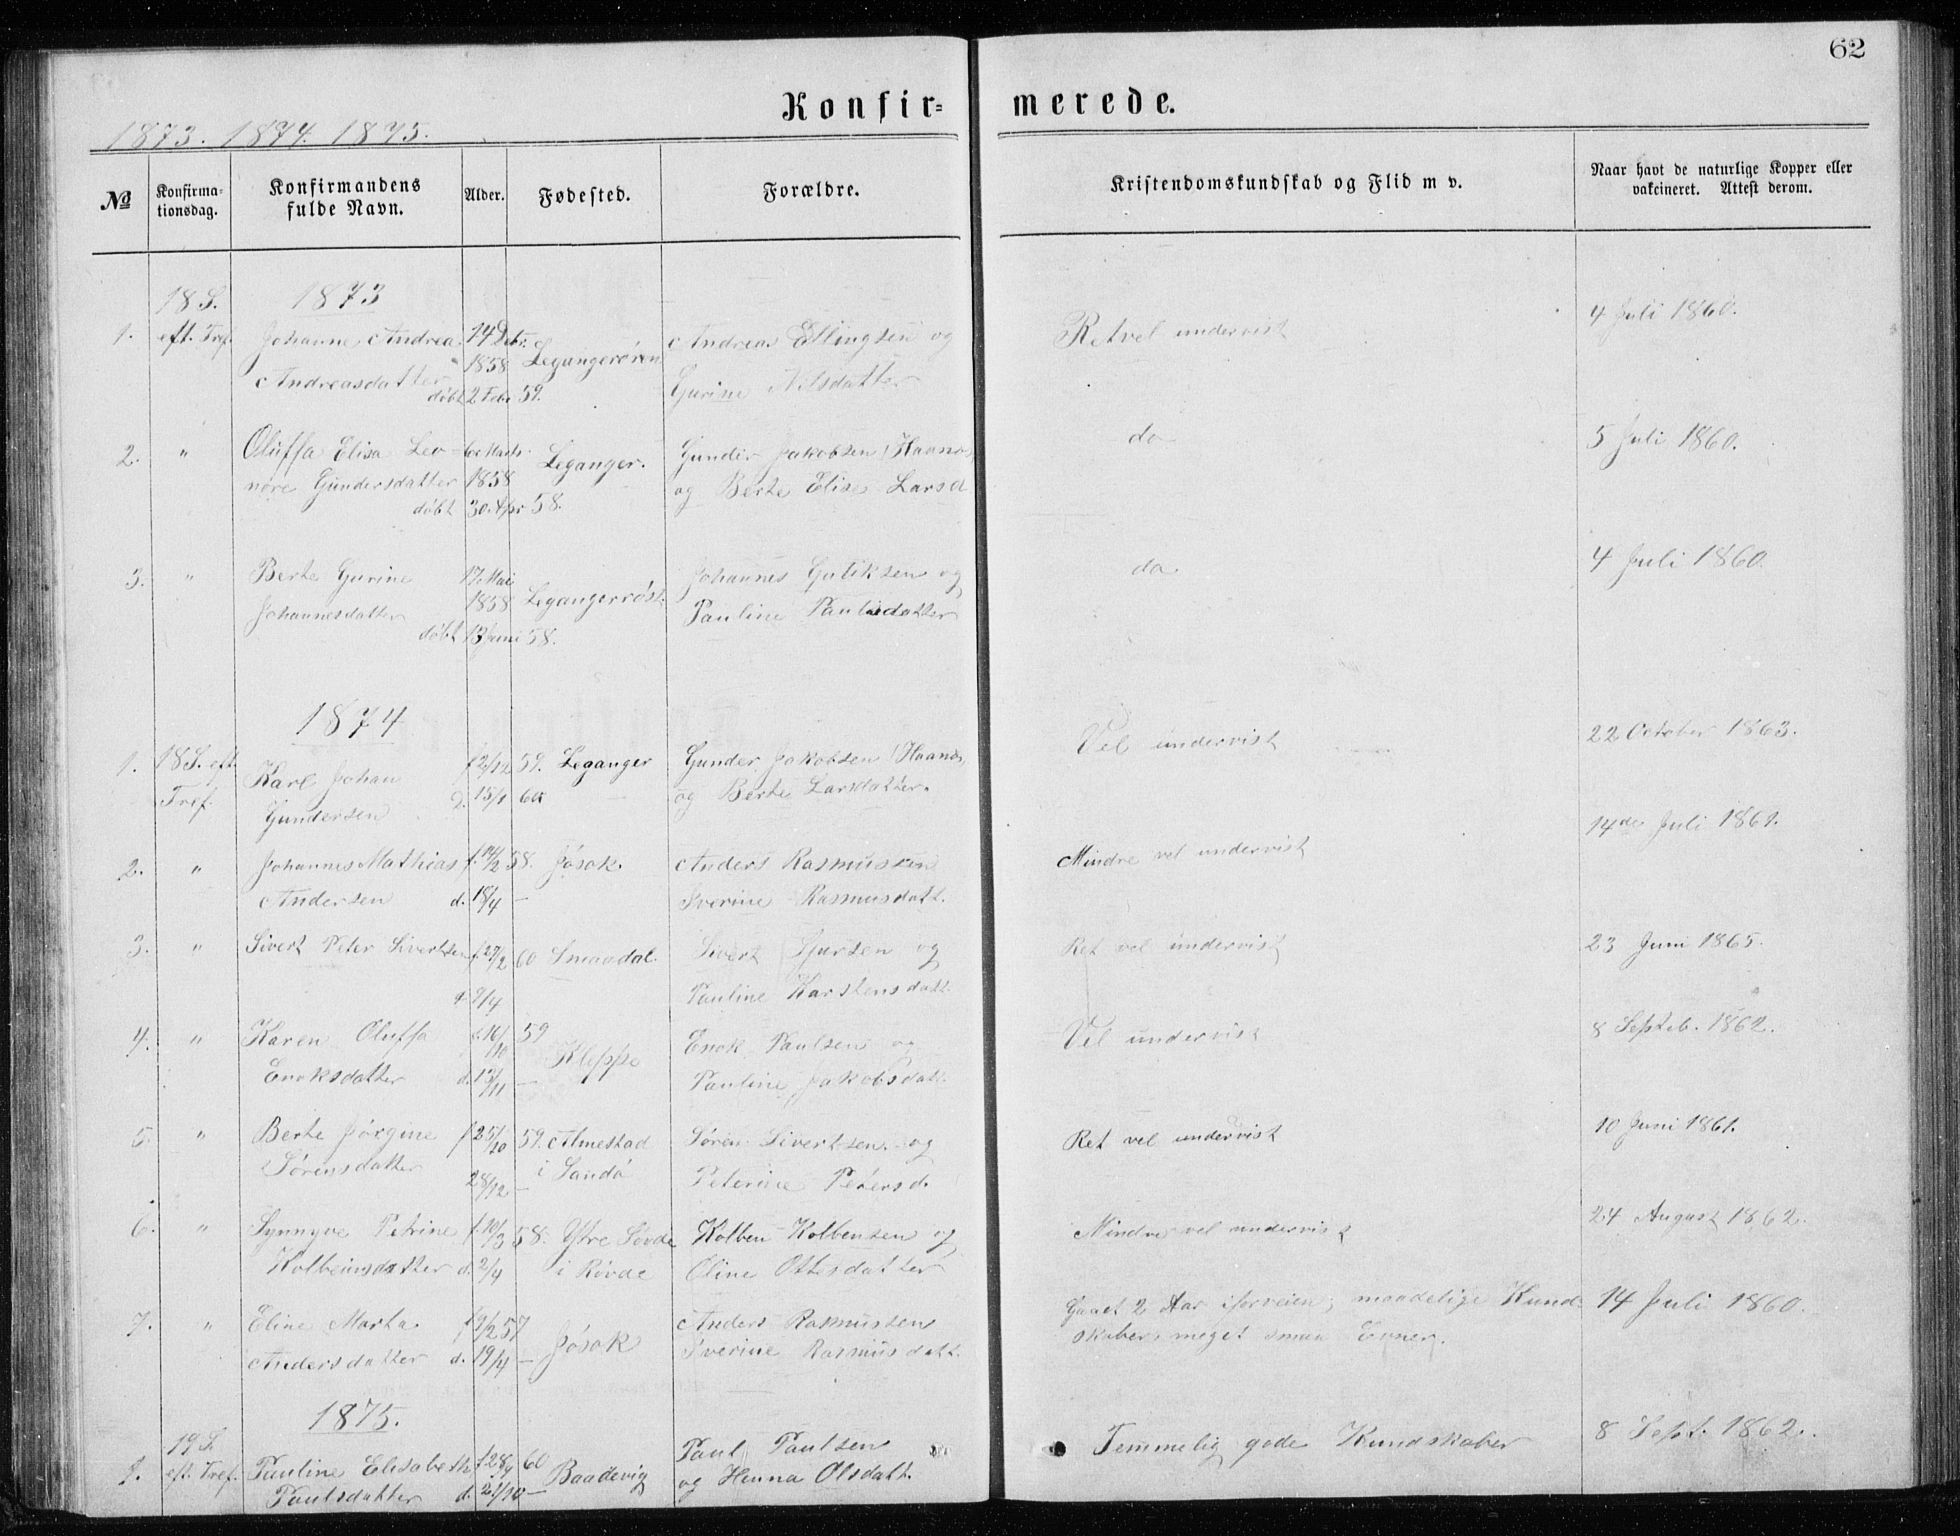 62
Konfir= merede.
1873. 1874. 1875.
No Konfirma- Konfirmandens Alder. Fødested. Forældre. Kristendomskundskab og Flid m v. Naar havt de naturlige Kopper eller
tionsdag. fulde Navn. vakcineret. Attest derom.
18 S. 1873
1. eft. Tref. Johanne Andrea 14 Decbr. Andreas Ellingsen og Retvel undervist 4 Juli 1860.
Andreasdatter 1858 Legangerøren Gurine Nilsdatter
døbt 2 Febr 59.
2. " Oluffa Elisa Leo- 6 Marts Leganger. Gunder Jakobsen (Haanes) do 5 Juli 1860.
nore Gundersdatter 1858 og Berte Elise Larsd
døbt 30. Apr 58.
3. " Berte Gurine 17 Mai Johannes Gutiksen og do 4 Juli 1860.
Johannesdatter 1858 Legangerrøst. Pauline Paulsdatter
døbt 13 Juni 58.
1874
1. 18 S. eft. Karl Johan f 2/12 59. Leganger Gunder Jakobsen (Haanes) Vel undervist 22 October 1863.
Tref. Gundersen d. 15/1 60 og Berte Larsdatter.
2. " Johannes Mathias f. 14/2 58. Jøsok Anders Rasmussen Mindre vel undervist 14de Juli 1861.
Andersen d. 18/4 — Iverine Rasmusdatt.
3. " Sivert Peter Sivertsen f. 27/2 60 Smaadal. Sivert Sjursen og Ret vel undervist 23 Juni 1865.
d 9/4 Pauline Karstensdatt.
4. " Karen Oluffa f. 16/10 59 Kleppe Enok Paulsen og Vel undervist 8 Septeb. 1862.
Enoksdatter d. 13/11 — Pauline Jakobsdatt.
5. " Berte Jørgine f 25/10 59. Almestad Søren Sivertsen og Ret vel undervist 10 Juni 1861.
Sørensdatter 28/12 — i Sandø Peterine Petersd.
6. " Synnyve Petrine f. 10/3 58. Ytre Søvde Kolben Kolbensen og Mindre vel undervist 24 August 1862.
Kolbeinsdatter d. 2/4 i Røvde Oline Ottesdatter
7. " Eline Marta f 9/2 57 Jøsok Anders Rasmussen Gaaet 2 Aar iforveien, maadelige Kund- 14 Juli 1860.
Andersdatter d. 19/4 — Iverine Rasmusdatt. skaber, meget smaa Evner.
1875.
19 S. Paul Paulsen Temmelig gode Kundskaber 8 Sept. 1862.
1. eft. Tref. Pauline Elisabeth f 28/9 60 Baadevig og Henna Olsdatt.
Paulsdatter d. 21/10 —